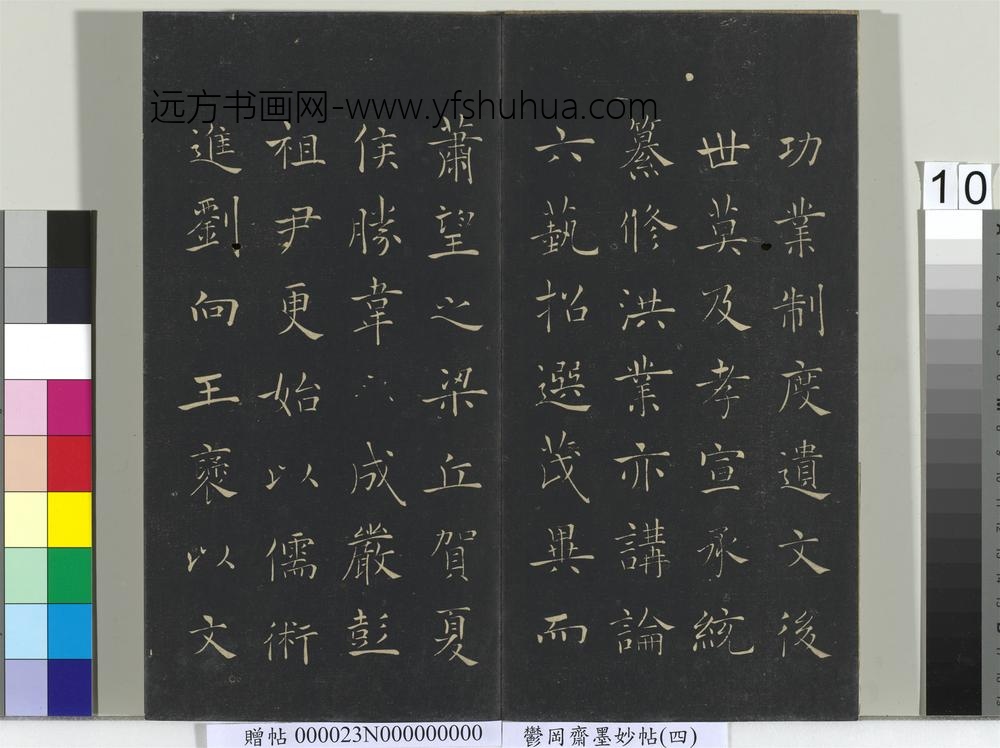 远方书画网-www.yfshuhua.com
功業制度遺文後
世莫及孝宣承統
纂修洪業亦講論
六藝招選茂異而
蕭望之梁丘賀夏
侯勝韋成嚴彭
祖尹更始以儒術
進劉向王褒以文
10
贈帖 000023N000000000 鬱岡齋墨妙帖(四)